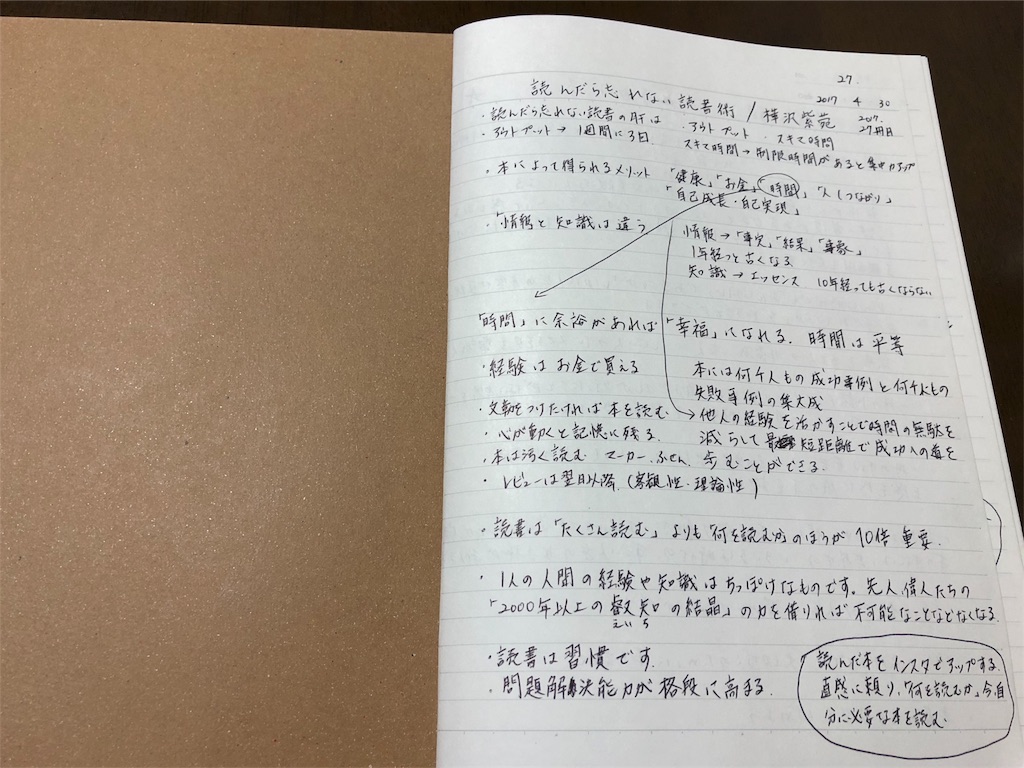 27.
2017 4 30
読んだら忘れない読書術 / 樺沢紫苑 2017.
27冊目
・読んだら忘れない読書の肝は ・アウトプット ・スキマ時間
・アウトプット→1週間に3日. スキマ時間→制限時間があると集中力アップ
・本によって得られるメリット 「健康」「お金」「時間」「人とつながり」
「自己成長・自己実現」
・「情報と知識は違う
情報→「事実」「結果」「事象」
1年経つと古くなる
知識→エッセンス 10年経っても古くならない
「時間」に余裕があれば「幸福」になれる. 時間は平等
・経験はお金で買える
本には何千人もの成功事例と何千人もの
失敗事例の集大成
・文章力をつけたければ本を読む
他人の経験を活かすことで時間の無駄を
・心が動くと記憶に残る.
減らして最短距離で成功への道を
・本は汚く読む マーカー、ふせん.
歩むことができる.
・レビューは翌日以降. (客観性・理論性)
・読書は「たくさん読む」よりも「何を読むか」のほうが10倍重要.
・1人の人間の経験や知識はちっぽけなものです。先人、偉人たちの
「2000年以上の叡知の結晶」の力を借りれば不可能なことなどなくなる.
えいち
・読書は習慣です.
・問題解決能力が格段に高まる.
読んだ本をインスタでアップする.
直感に頼り、「何を読むか」今自
分に必要な本を読む